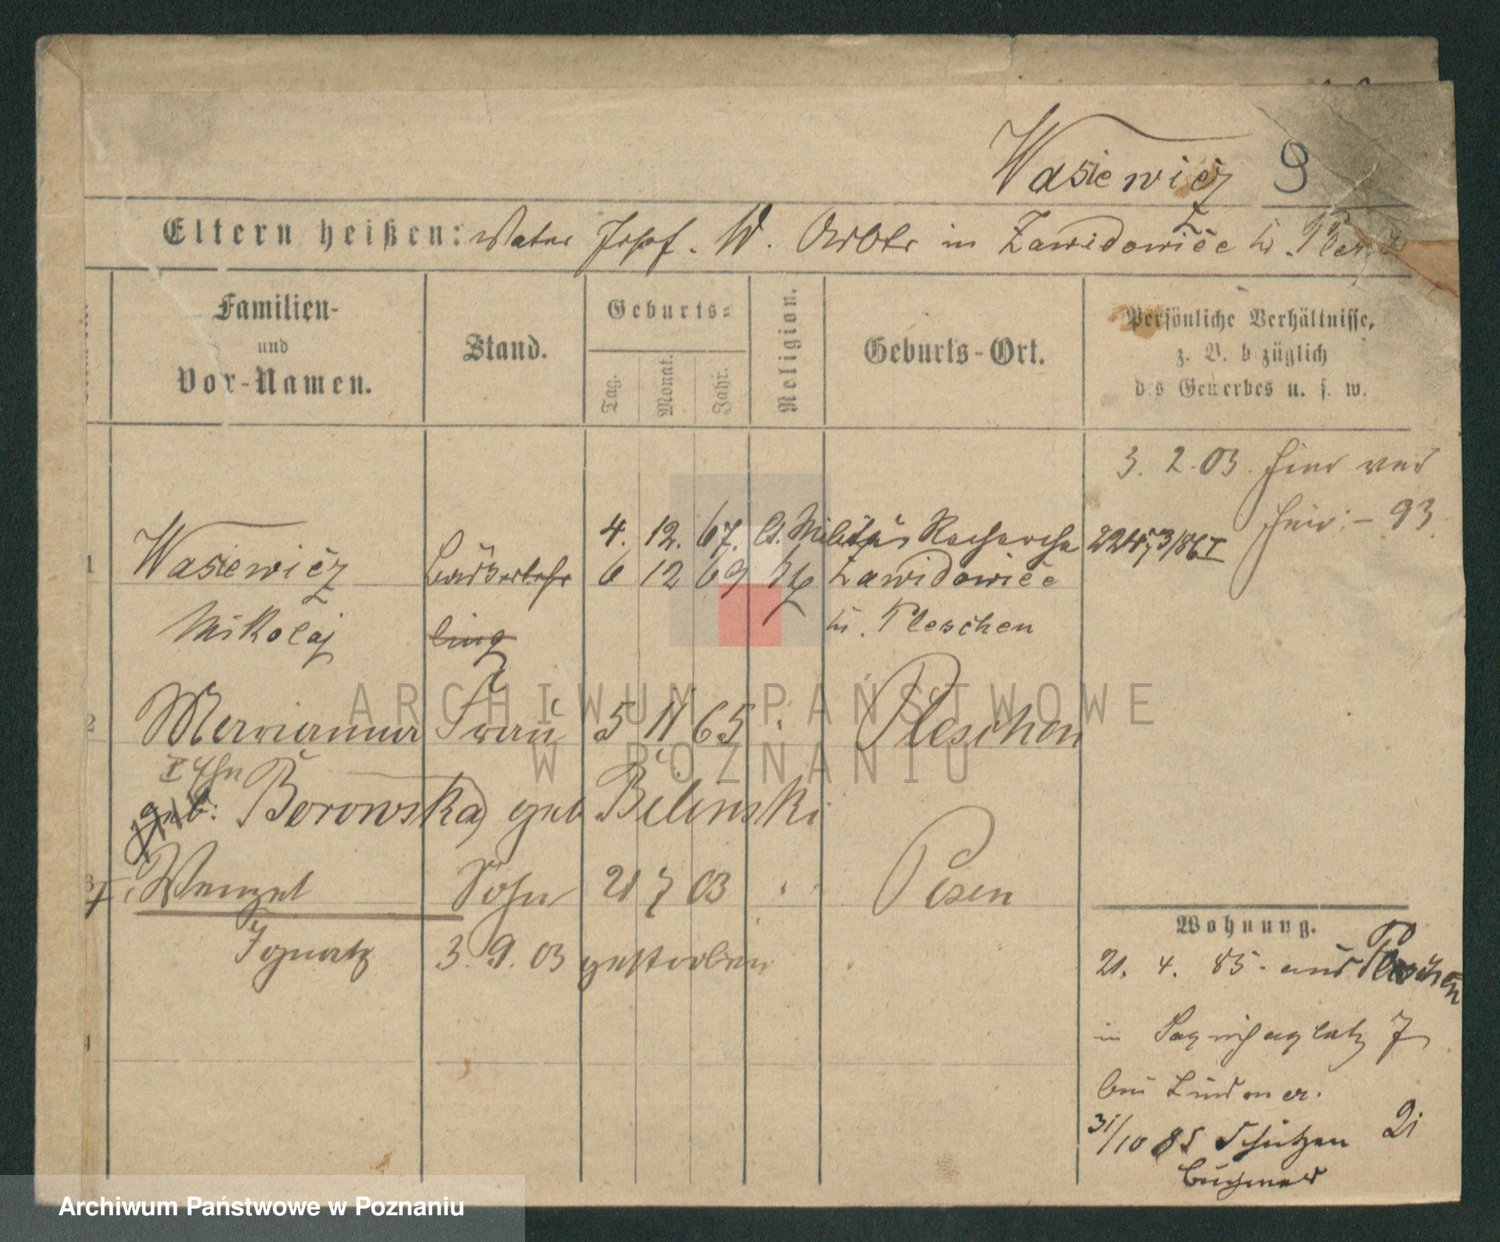 Wasiewicz 9
Eltern heißen: Vater Josef. W. Arbtr in Zawidowice Kr. Ples
Familien-
und
Vor-Namen.
Stand.
Geburts-
Tag. Monat. Jahr.
Religion.
Geburts-Ort.
Persönliche Verhältnisse,
z. B. bezüglich
des Gewerbes u. s. w.
3. 2. 03.
93
4. 12. 67. lt. Militär Recherche 22453/86 I
1 Wasiewicz 6 12 69 Zawidowice
Mikolaj ling Kr. Pleschen
2 Marianna Frau 5 11 65 " Pleschen
geb: Borowska geb Bilinski
3 Wenzel Sohn 21 7 03 " Posen
Ignatz 3. 9. 03 gestorben
4
Wohnung.
21. 4. 85. aus Pleschen
in Sapiehaplatz 7
bei Lindner.
31/10 85 Schützen 21
ARCHIWUM PAŃSTWOWE
W POZNANIU
Archiwum Państwowe w Poznaniu